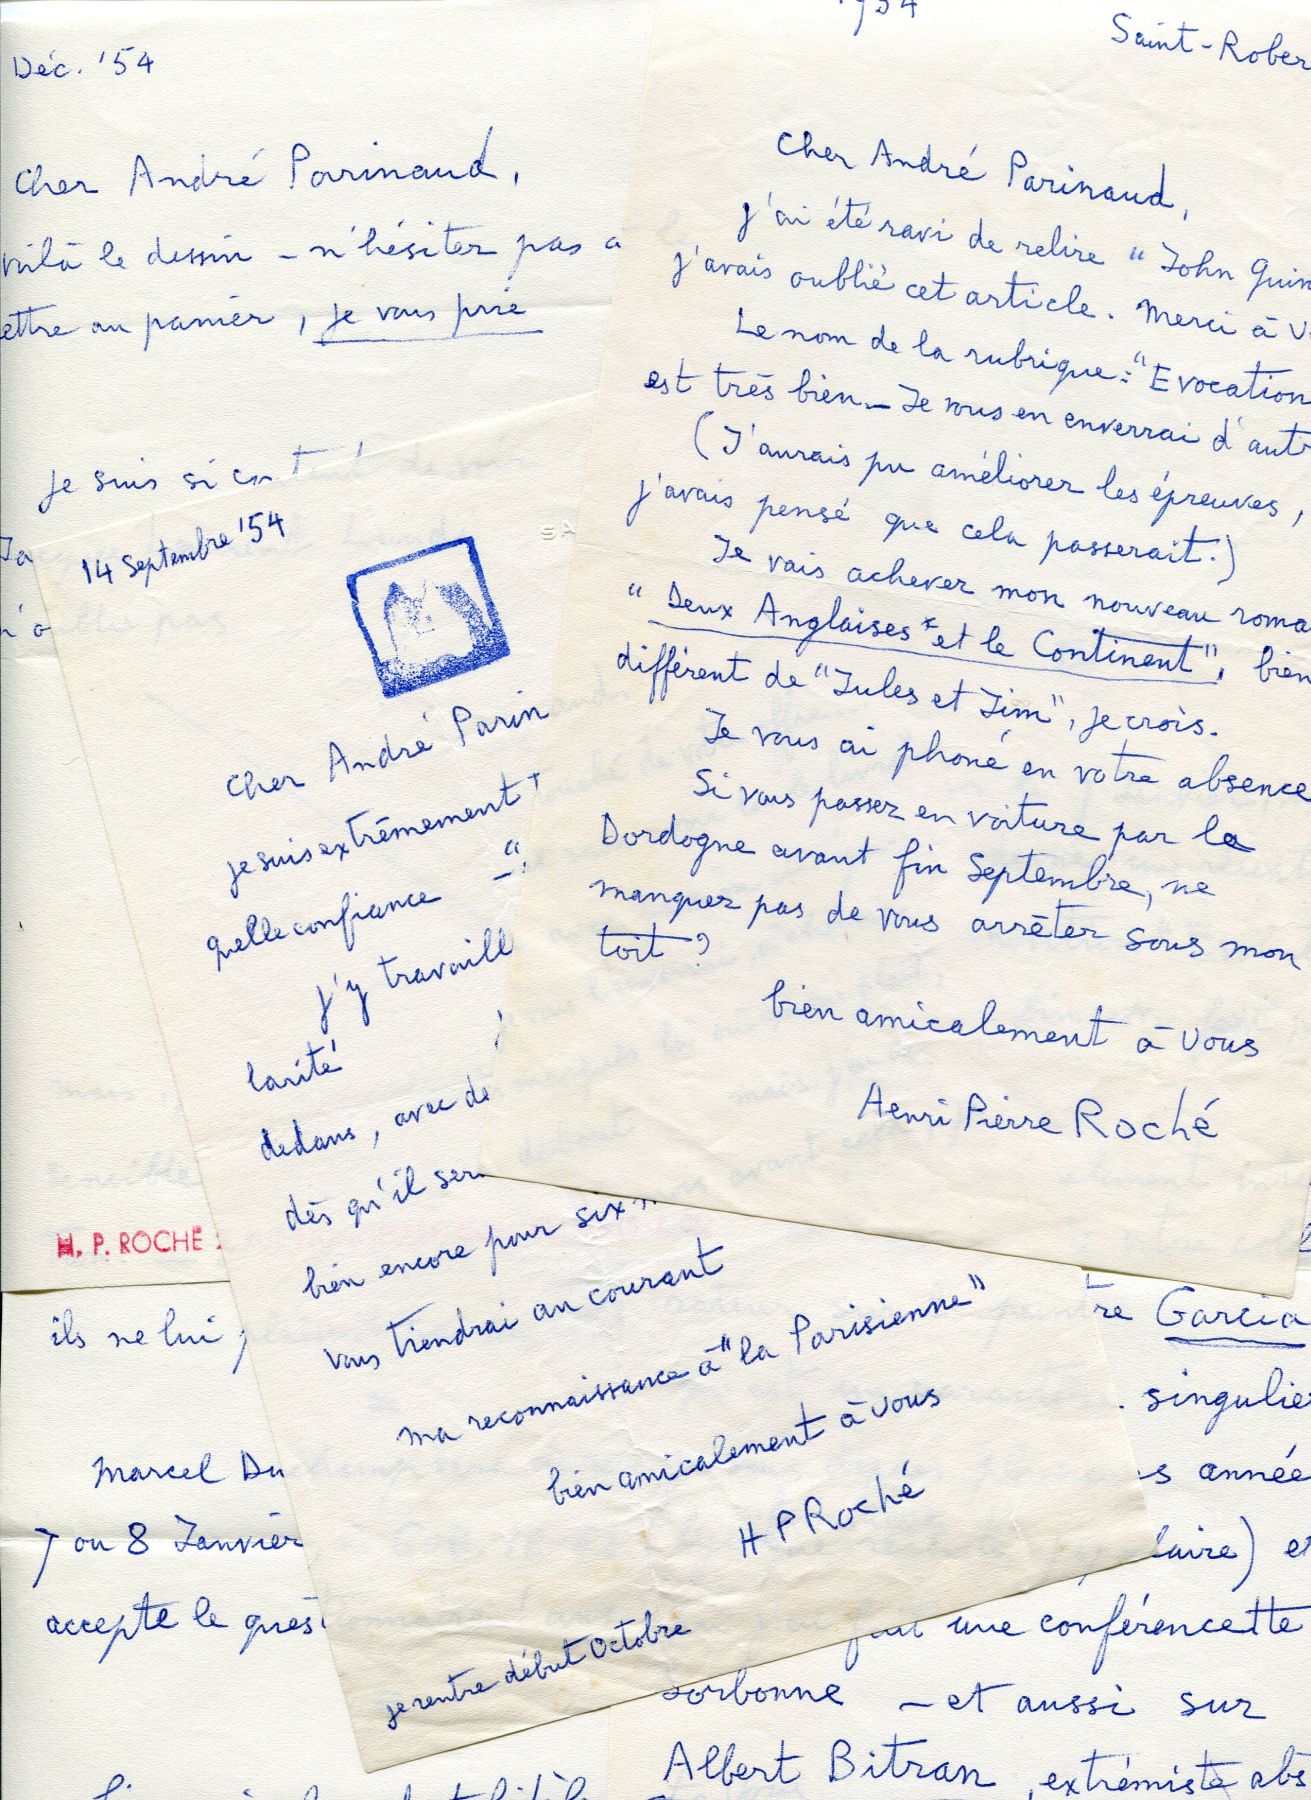 Déc. '54
Cher André Parinaud,
voilà le dessin – n'hésitez pas à
ettre au panier, je vous prie
je suis si content de
H. P. ROCHÉ
1954
Saint-Rober
Cher André Parinaud,
j'ai été ravi de relire "John Quin
j'avais oublié cet article. Merci à v
Le nom de la rubrique : "Evocation
est très bien – Je vous en enverrai d'autr
(J'aurais pu améliorer les épreuves,
j'avais pensé que cela passerait.)
Je vais achever mon nouveau roma
"Deux Anglaises* et le Continent", bien
différent de "Jules et Jim", je crois.
Je vous ai phoné en votre absence
Si vous passez en voiture par la
Dordogne avant fin Septembre, ne
manquez pas de vous arrêter sous mon
toit ?
bien amicalement à vous
Henri Pierre Roché
14 Septembre '54
Cher André Parin
je suis extrêmement
quelle confiance – "
j'y travaill
larité
dedans, avec de
dès qu'il ser
bien encore pour six
vous tiendrai au courant
ma reconnaissance à "la Parisienne"
bien amicalement à vous
H P Roché
je rentre début Octobre
ils ne lui
Marcel Du
7 ou 8 Janvier
accepte le quest
re Garcia
singulie
s année
laire) et
une conférencette
Sorbonne – et aussi sur
Albert Bitran, extrémiste abs